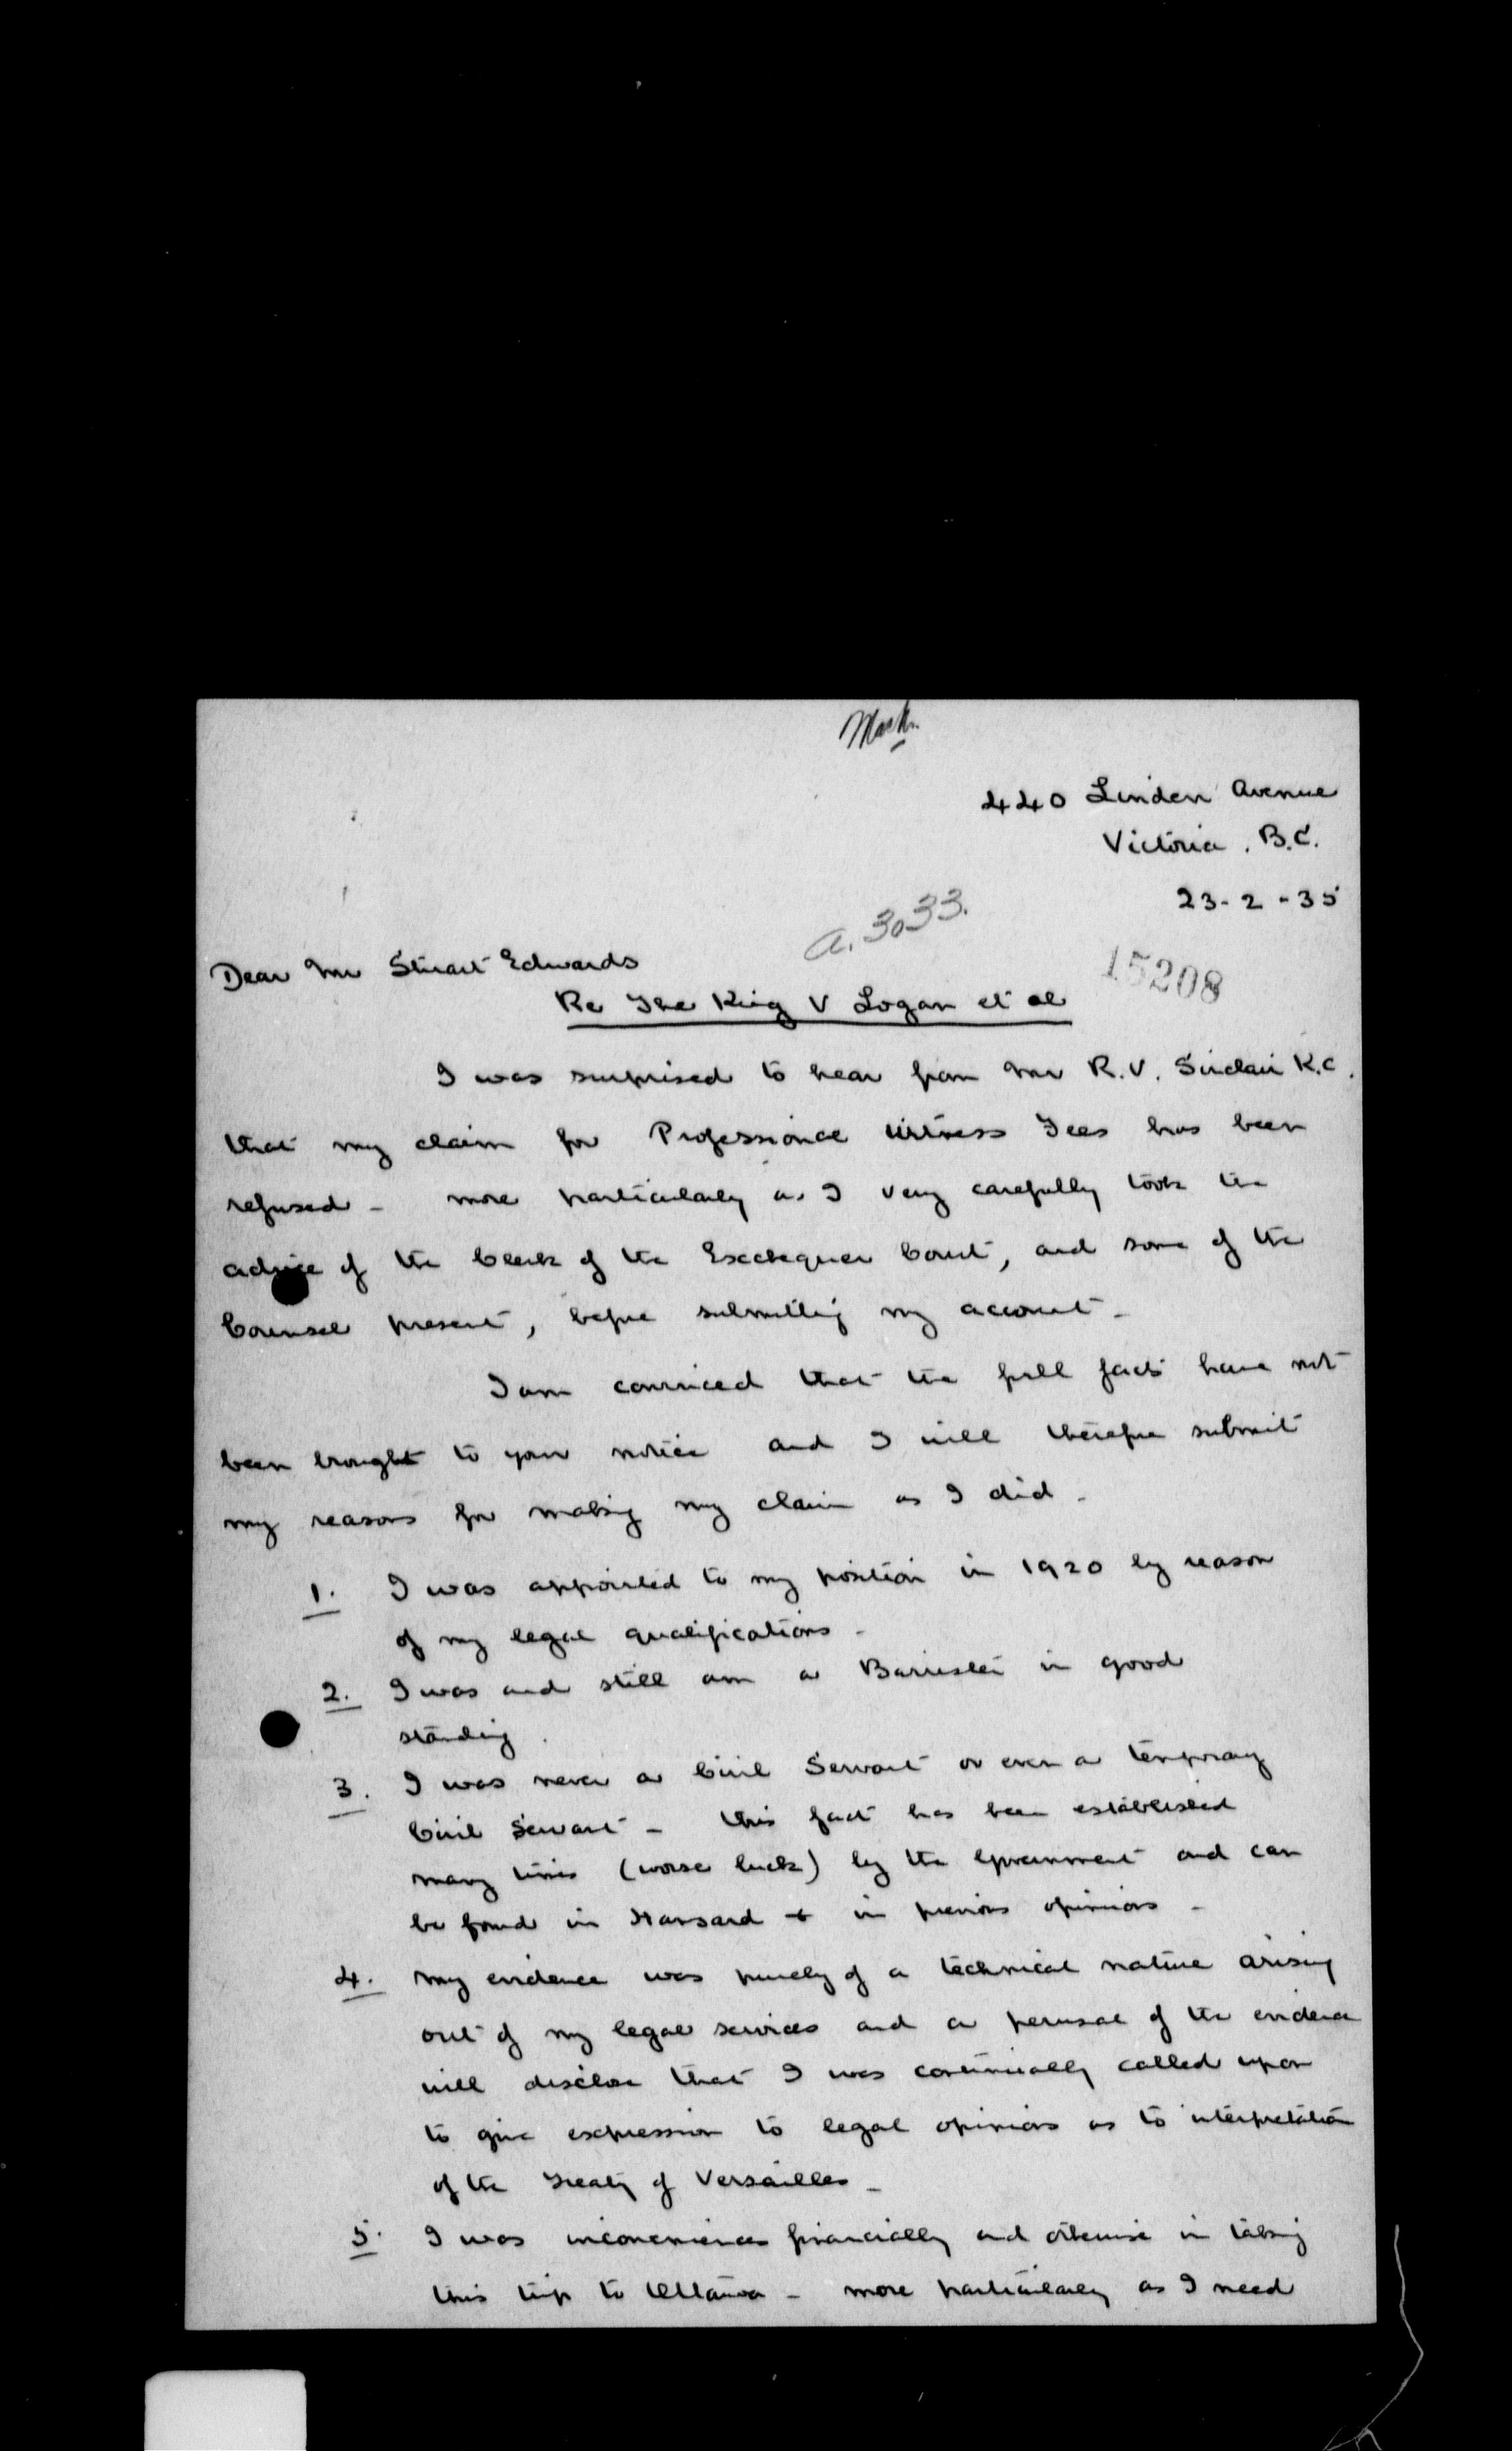 440 Linden Avenue
Victoria. B.C.
23-2-35
a. 3033.
Dear Mr Stuart Edwards
15208
Re The King V Logan et al
I was surprised to hear from Mr R.V. Sinclair K.C.
that my claim for Professional Witness Fees has been
refused - more particularly as I very carefully took the
advice of the Clerk of the Exchequer Court, and some of the
Counsel present, before submitting my account -
I am convinced that the full facts have not
been brought to your notice and I will therefore submit
my reasons for making my claim as I did -
1. I was appointed to my position in 1920 by reason
of my legal qualifications -
2. I was and still am a Barrister in good
standing.
3. I was never a Civil Servant or even a temporary
Civil Servant - this fact has been established
many times (worse luck) by the Government and can
be found in Hansard + in previous opinions -
4. My evidence was purely of a technical nature arising
out of my legal services and a perusal of the evidence
will disclose that I was continually called upon
to give expression to legal opinions as to interpretation
of the Treaty of Versailles -
5. I was inconvenienced financially and otherwise in taking
this trip to Ottawa - more particularly as I need